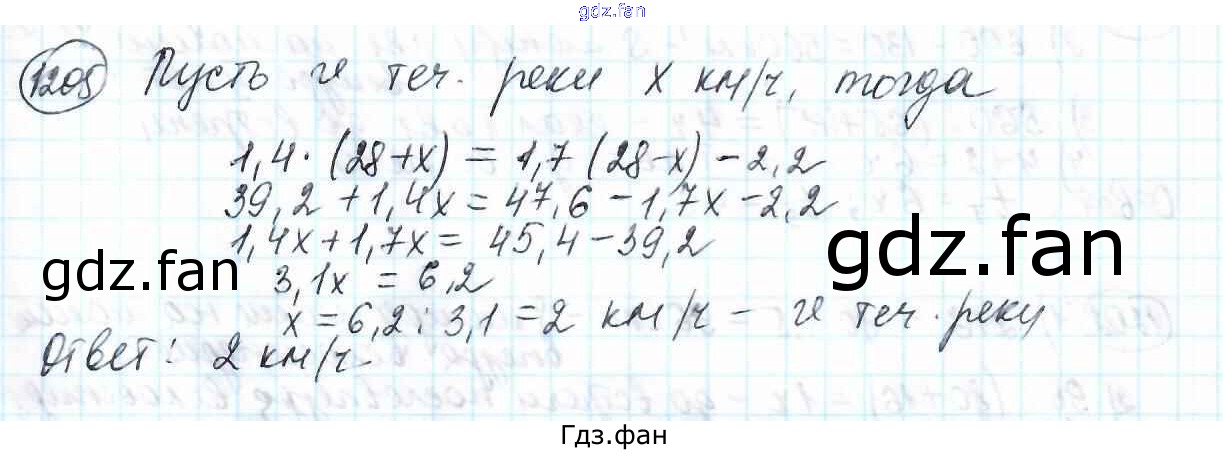 gdz.fan
1205 Пусть ϑ теч. реки x км/ч, тогда
1,4·(28+x) = 1,7(28-x) - 2,2
39,2 + 1,4x = 47,6 - 1,7x - 2,2
1,4x + 1,7x = 45,4 - 39,2
3,1x = 6,2
x = 6,2 : 3,1 = 2 км/ч - ϑ теч. реки
Ответ: 2 км/ч
gdz.fan
gdz.fan
Гдз.фан